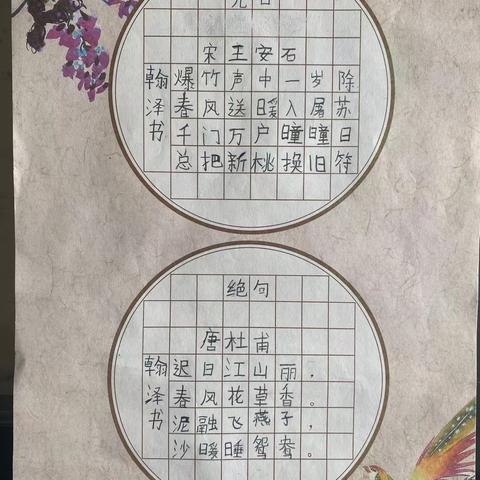 元日
宋王安石
爆竹声中一岁除
春风送暖入屠苏
千门万户瞳瞳日
总把新桃换旧符
翰泽书
绝句
唐杜甫
迟日江山丽，
春风花草香。
泥融飞燕子，
沙暖睡鸳鸯。
翰泽书